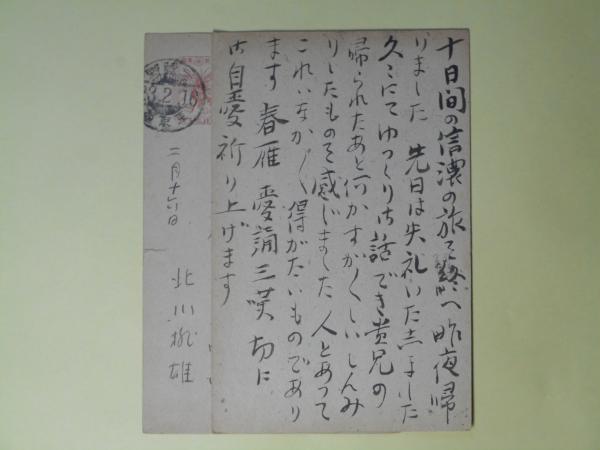 十日間の信濃の旅を終へ昨夜帰
りました 先日は失礼いた志ました
久々にてゆっくりお話でき貴兄の
帰られたあと何かすがくしいしんみ
りしたものを感じました 人とあって
これはなか〱得がたいものであり
ます 春雁 愛誦三嘆 切に
御自愛祈り上げます
二月十六日
北川桃雄